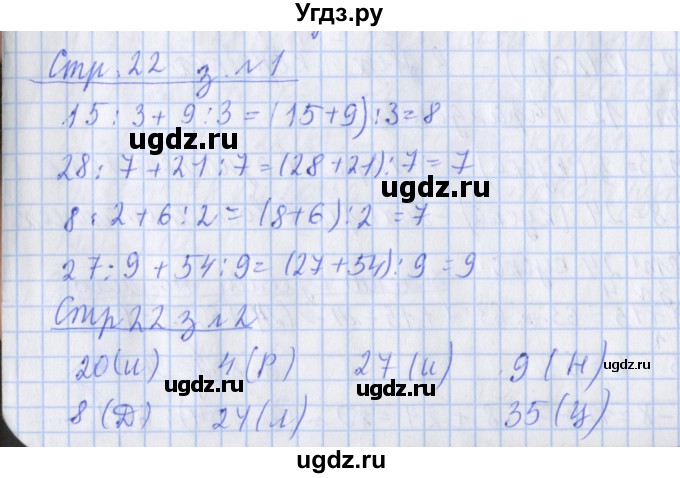 Угдз.ру
Стр. 22 з. №1
15 : 3 + 9 : 3 = (15+9) : 3 = 8
ugdz.ru ugdz.ru
28 : 7 + 21 : 7 = (28+21) : 7 = 7
ugdz.ru
8 : 2 + 6 : 2 = (8+6) : 2 = 7
ugdz.ru
27 : 9 + 54 : 9 = (27+54) : 9 = 9
Стр 22 з №2
20 (И) 4 (Р) 27 (И) 9 (Н)
ugdz.ru ugdz.ru ugdz.ru
8 (Д) 24 (Л) 35 (Ц)
ugdz.ru